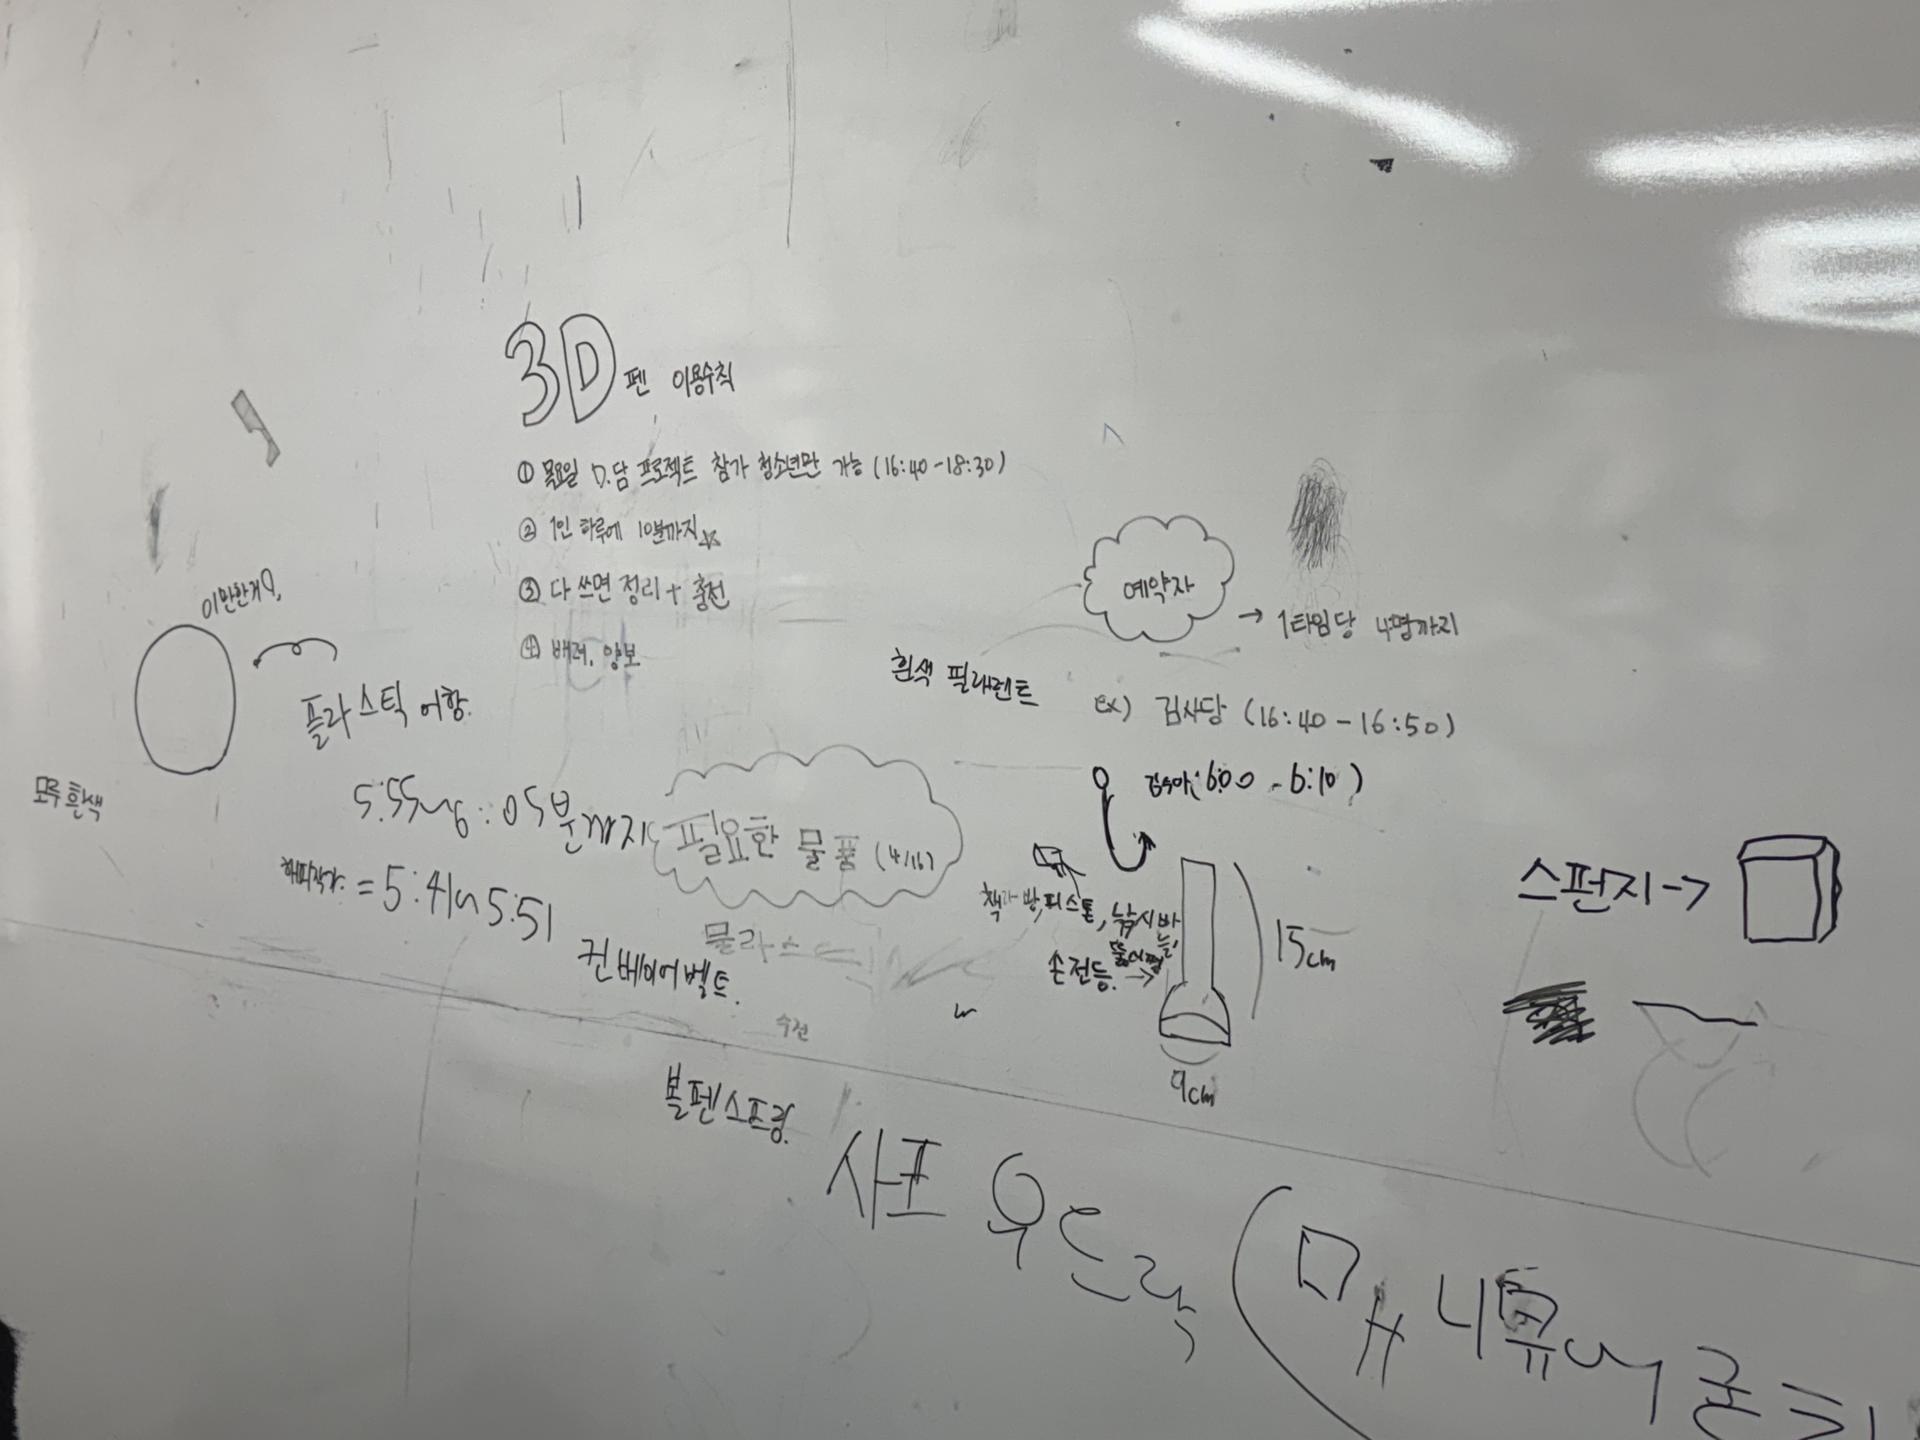 3D 펜 이용수칙
① 목요일 D.담 프로젝트 참가 청소년만 가능 (16:40-18:30)
② 1인 하루에 10분까지☆
③ 다 쓰면 정리 + 충전
④ 배려, 양보
예약자
→ 1타임당 4명까지
흰색 필라멘트
ex) 김사당 (16:40-16:50)
(6:00-6:10)
이만한거
플라스틱 어항.
모두 흰색
5:55~6:05분까지
필요한 물품 (4/16)
= 5:41~5:51
컨베이어벨트.
수전
볼펜스프링
낚시바늘,
손전등. →
15cm
9cm
스펀지→
사포 우드락